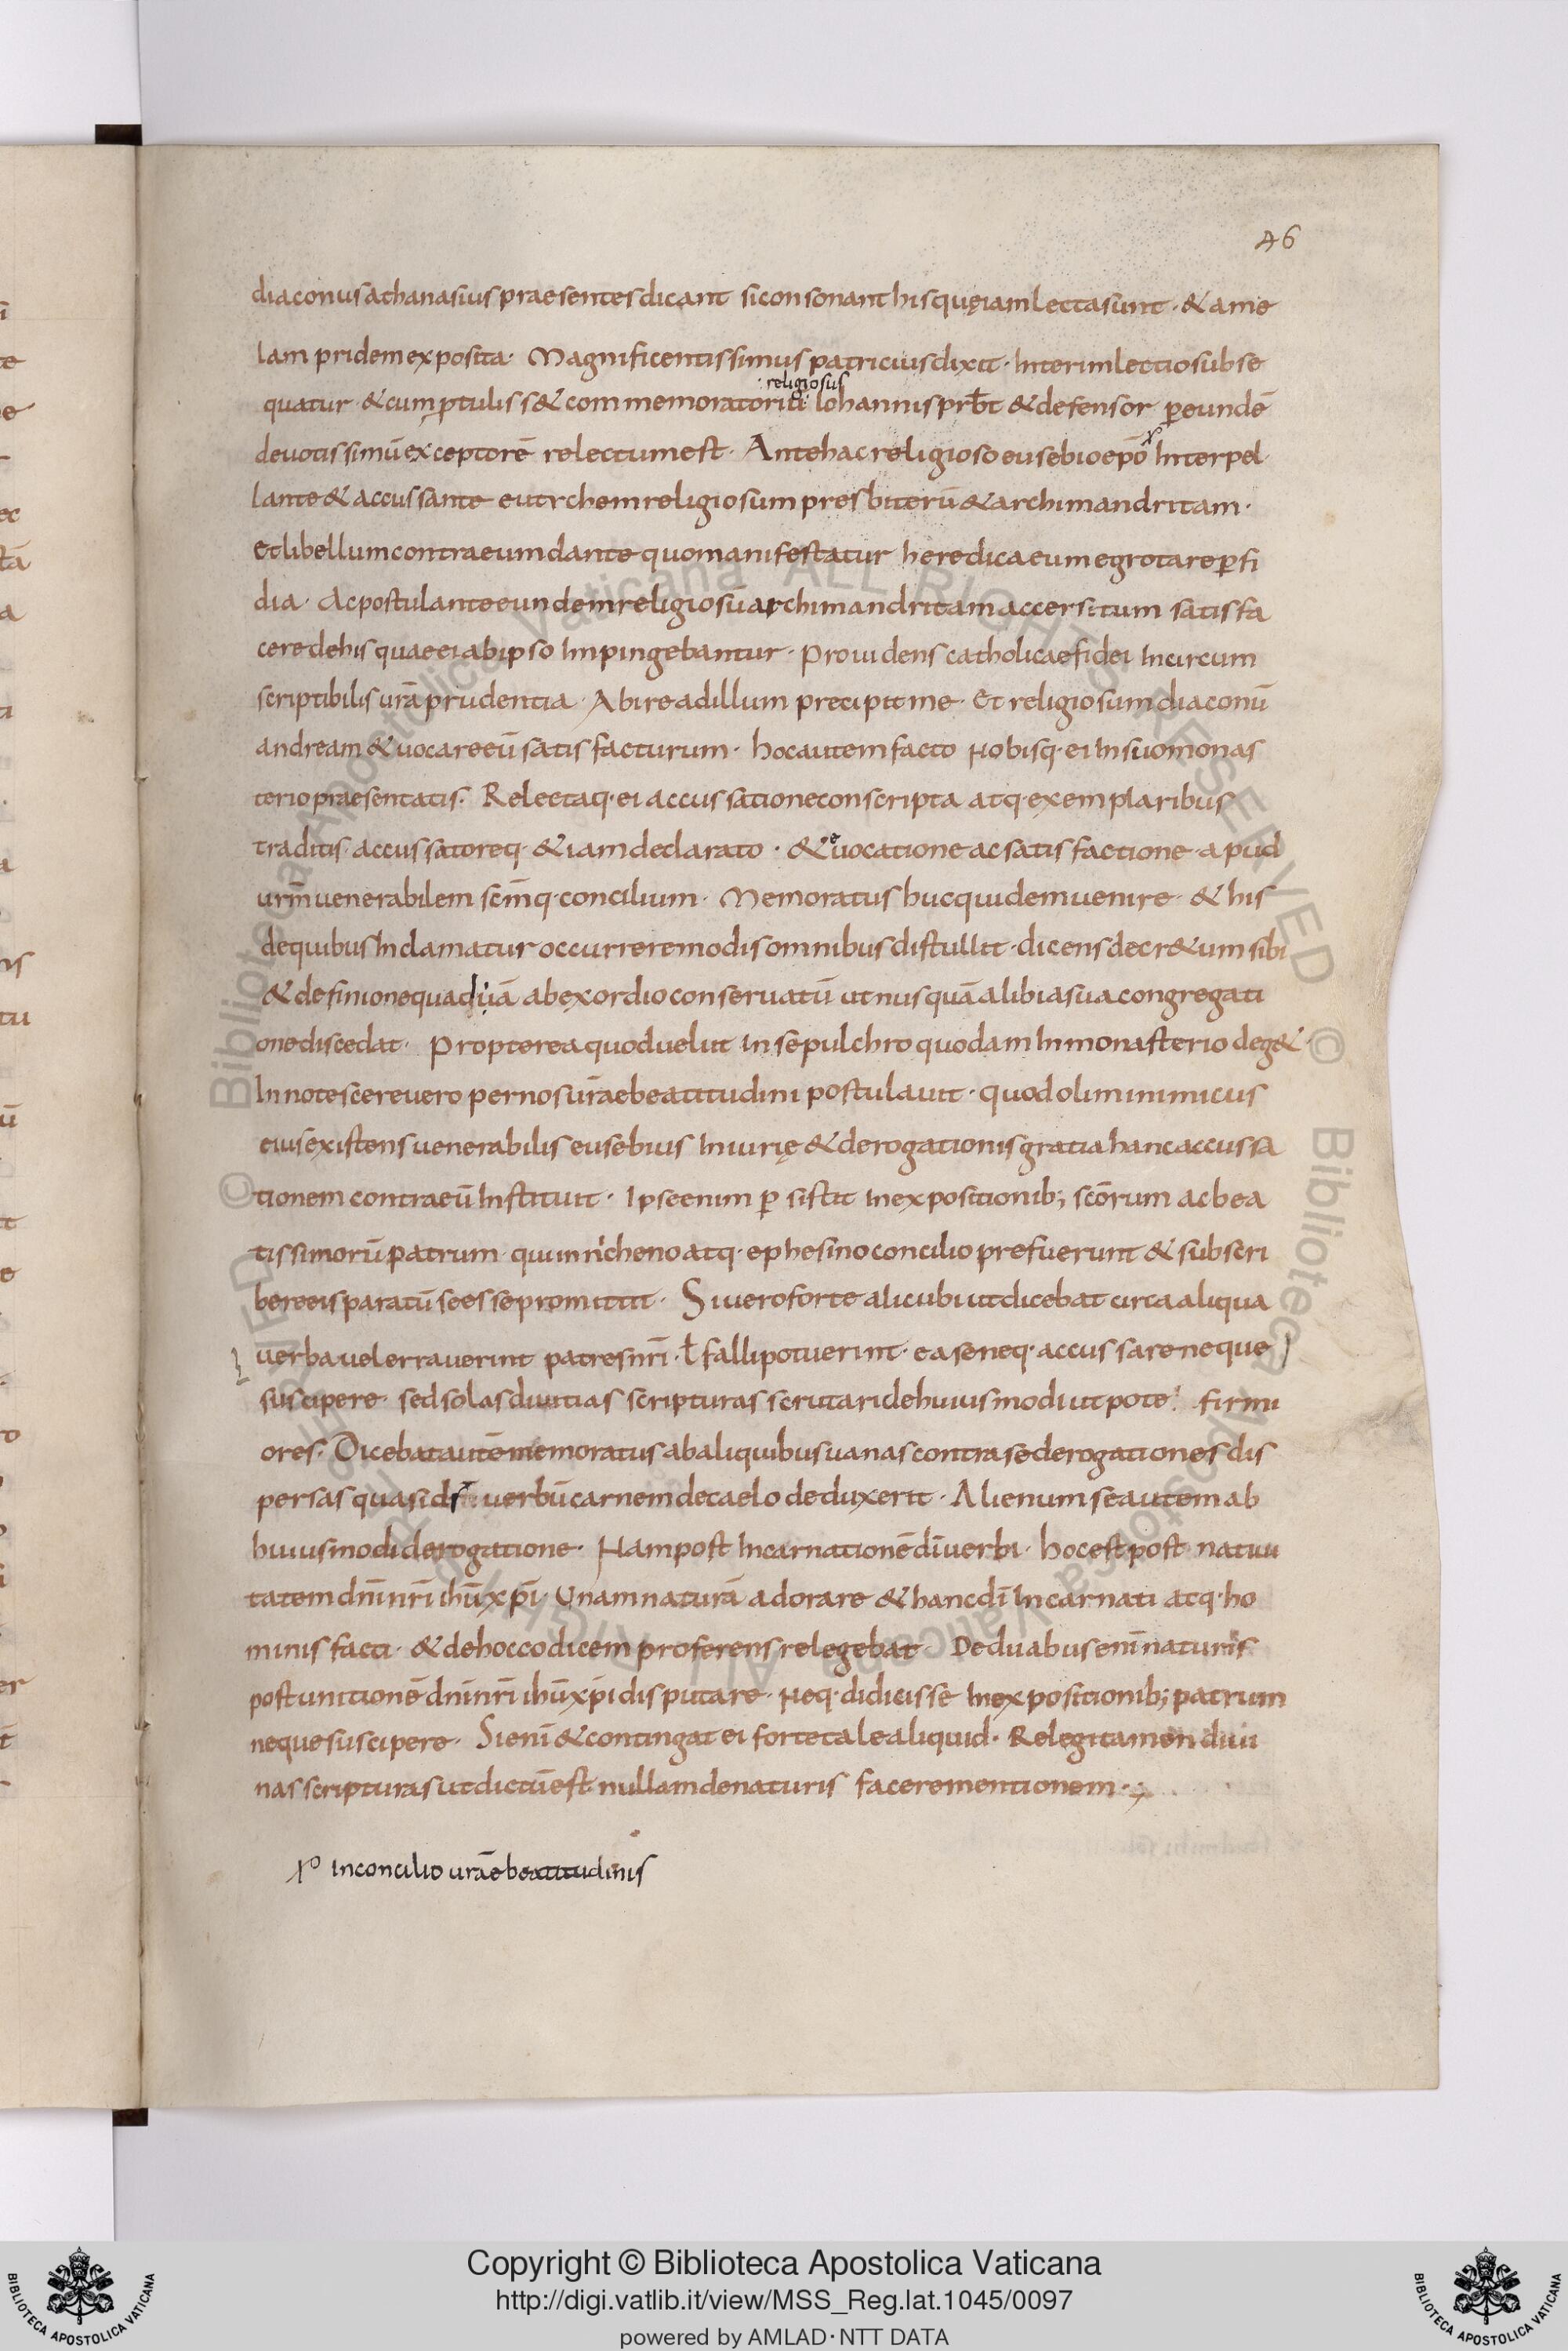 46
diaconus athanasius praesentes dicant si consonant his quę iam lecta sunt · & a me
Iam pridem exposita · Magnificentissimus patricius dixit · Interim lectio subse
religiosus
quatur · & cum ptulisss& commemoratoriū Iohannis prbt & defensor p eundē
deuotissimū exceptorē relectum est · Antehac religioso eusebio epō Interpel
lante & accussante eutrchem religiosum presbiterū & archimandritam ·
et libellum contra eum dante quo manifestatur heredica eum egrotare pfi
dia · Ac postulante eundem religiosū archimandritam accersitum satisfa
cere de his quae ei ab ipso Impingebantur · Prouidens catholicae fidei Incircum
scriptibilis urā prudentia · Abire ad illum precipit me · Et religiosum diaconū
andream & uocare eū satisfacturum · hoc autem facto Nobisq· ei In suo monas
terio praesentatis · Relectaq· ei accussatione conscripta atq· exemplaribus
traditis accussatoreq· & iam declarato · & euocatione ac satisfactione apud
urm̄ uenerabilem scm̄q· concilium · Memoratus huc quidem uenire · & his
de quibus Inclamatur occurrere modis omnibus distullit · dicens decr&um sibi
& definione quadā ab exordio conseruatū ut nusquā alibi a sua congregati
one discedat · Propterea quod uelut in sepulchro quodam In monasterio deg& ·
Innotescere uero per nos urae beatitudini postulauit · quod olim inimicus
eius existens uenerabilis eusebius Iniurię & derogationis gratia hanc accussa
tionem contra eū Instituit · Ipse enim p sistit In expositionib; scōrum ac bea
tissimorū patrum qui in nicheno atq· ephesino concilio prefuerunt & subscri
bere eis paratū se esse promittit · Si uero forte alicubi ut dicebat circa aliqua
uerba uel errauerint patres nr̄i · ł falli potuerint · ea se neq· accussare neque
suscipere · sed solas diuitias scripturas scrutari de huiusmodi utpote firmi
ores · Dicebat autē memoratus ab aliquibus uanas contra se derogationes dis
persas quasi ds uerbū carnem de caelo deduxerit · Alienum se autem ab
huiusmodi derogatione · Nam post Incarnationē dī uerbi · hoc est post natiui
tatem dnī nr̄i ihū xp̄i · Unam naturā adorare & hanc dī Incarnati atq· ho
minis facti · & de hoc codicem proferens relegebat · De duabus enī naturis
post unitionē dnī nr̄i ihū xp̄i disputare · Neq· didicisse In expositionib; patrum
neque suscipere · Si enī & contingat ei forte tale aliquid · Relegi tamen diui
nas scripturas ut dictū est nullam de naturis facere mentionem ·;
in concilio urāe beatitudinis
Copyright © Biblioteca Apostolica Vaticana
http://digi.vatlib.it/view/MSS_Reg.lat.1045/0097
powered by AMLAD·NTT DATA
BIBLIOTECA APOSTOLICA VATICANA
BIBLIOTECA APOSTOLICA VATICANA